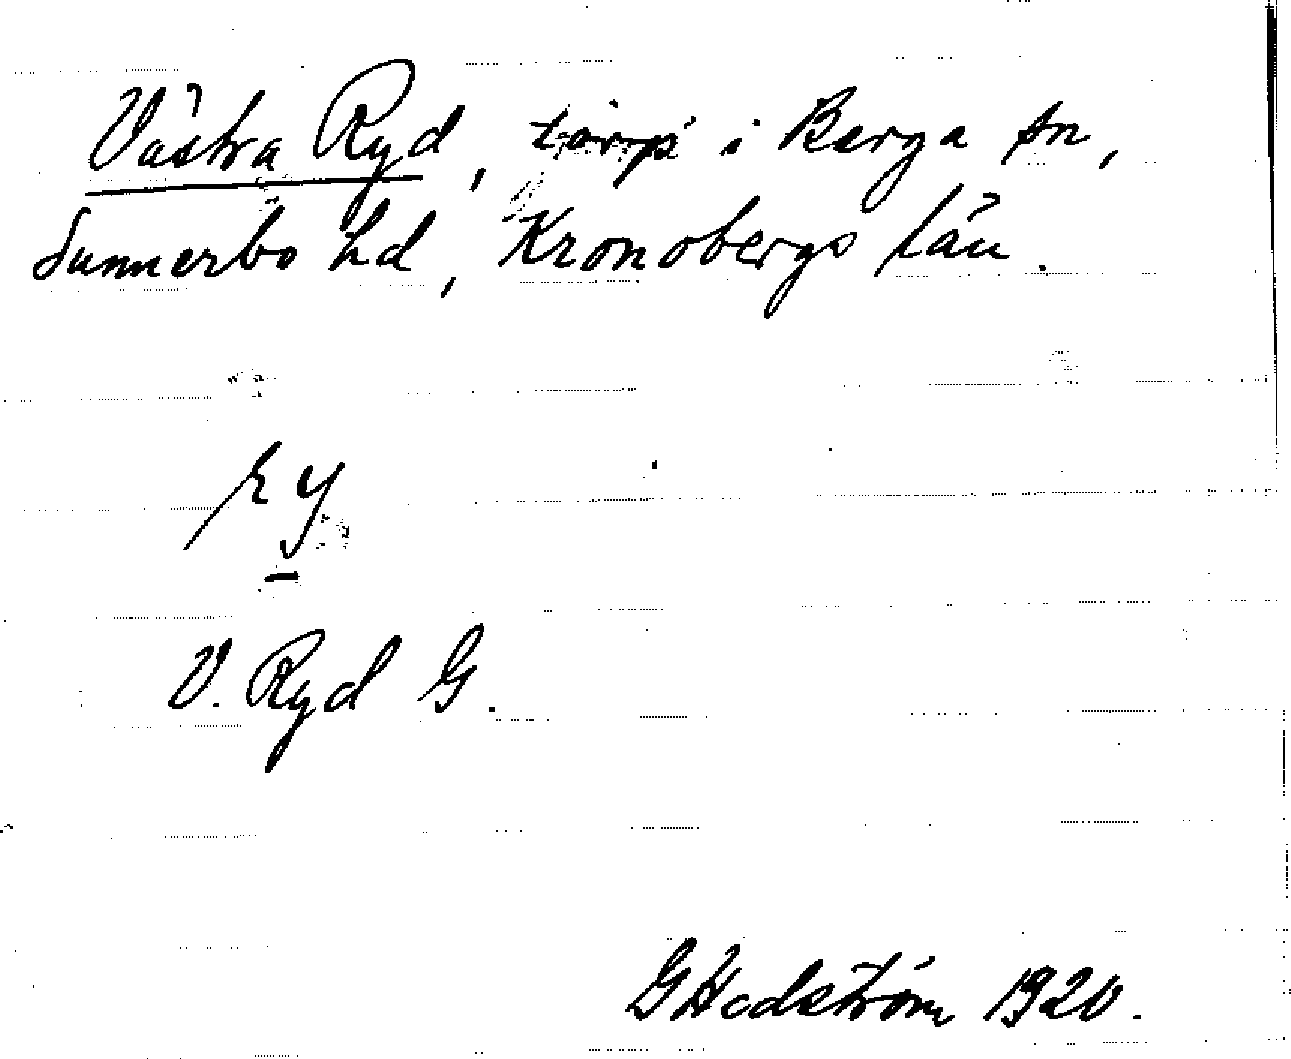 Västra Ryd, torp i Berga sn,
Sunnerbo hd, Kronobergs län.
ry
V. Ryd G.
G Hedström 1920.